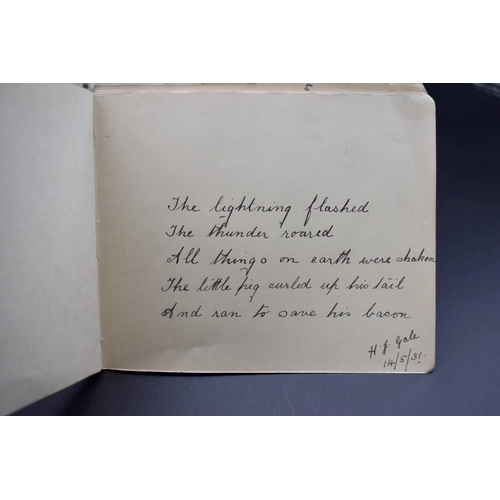 The lightning flashed
The thunder roared
All things on earth were shaken
The little pig curled up his tail
And ran to save his bacon
H. J. Gale
14/5/31.